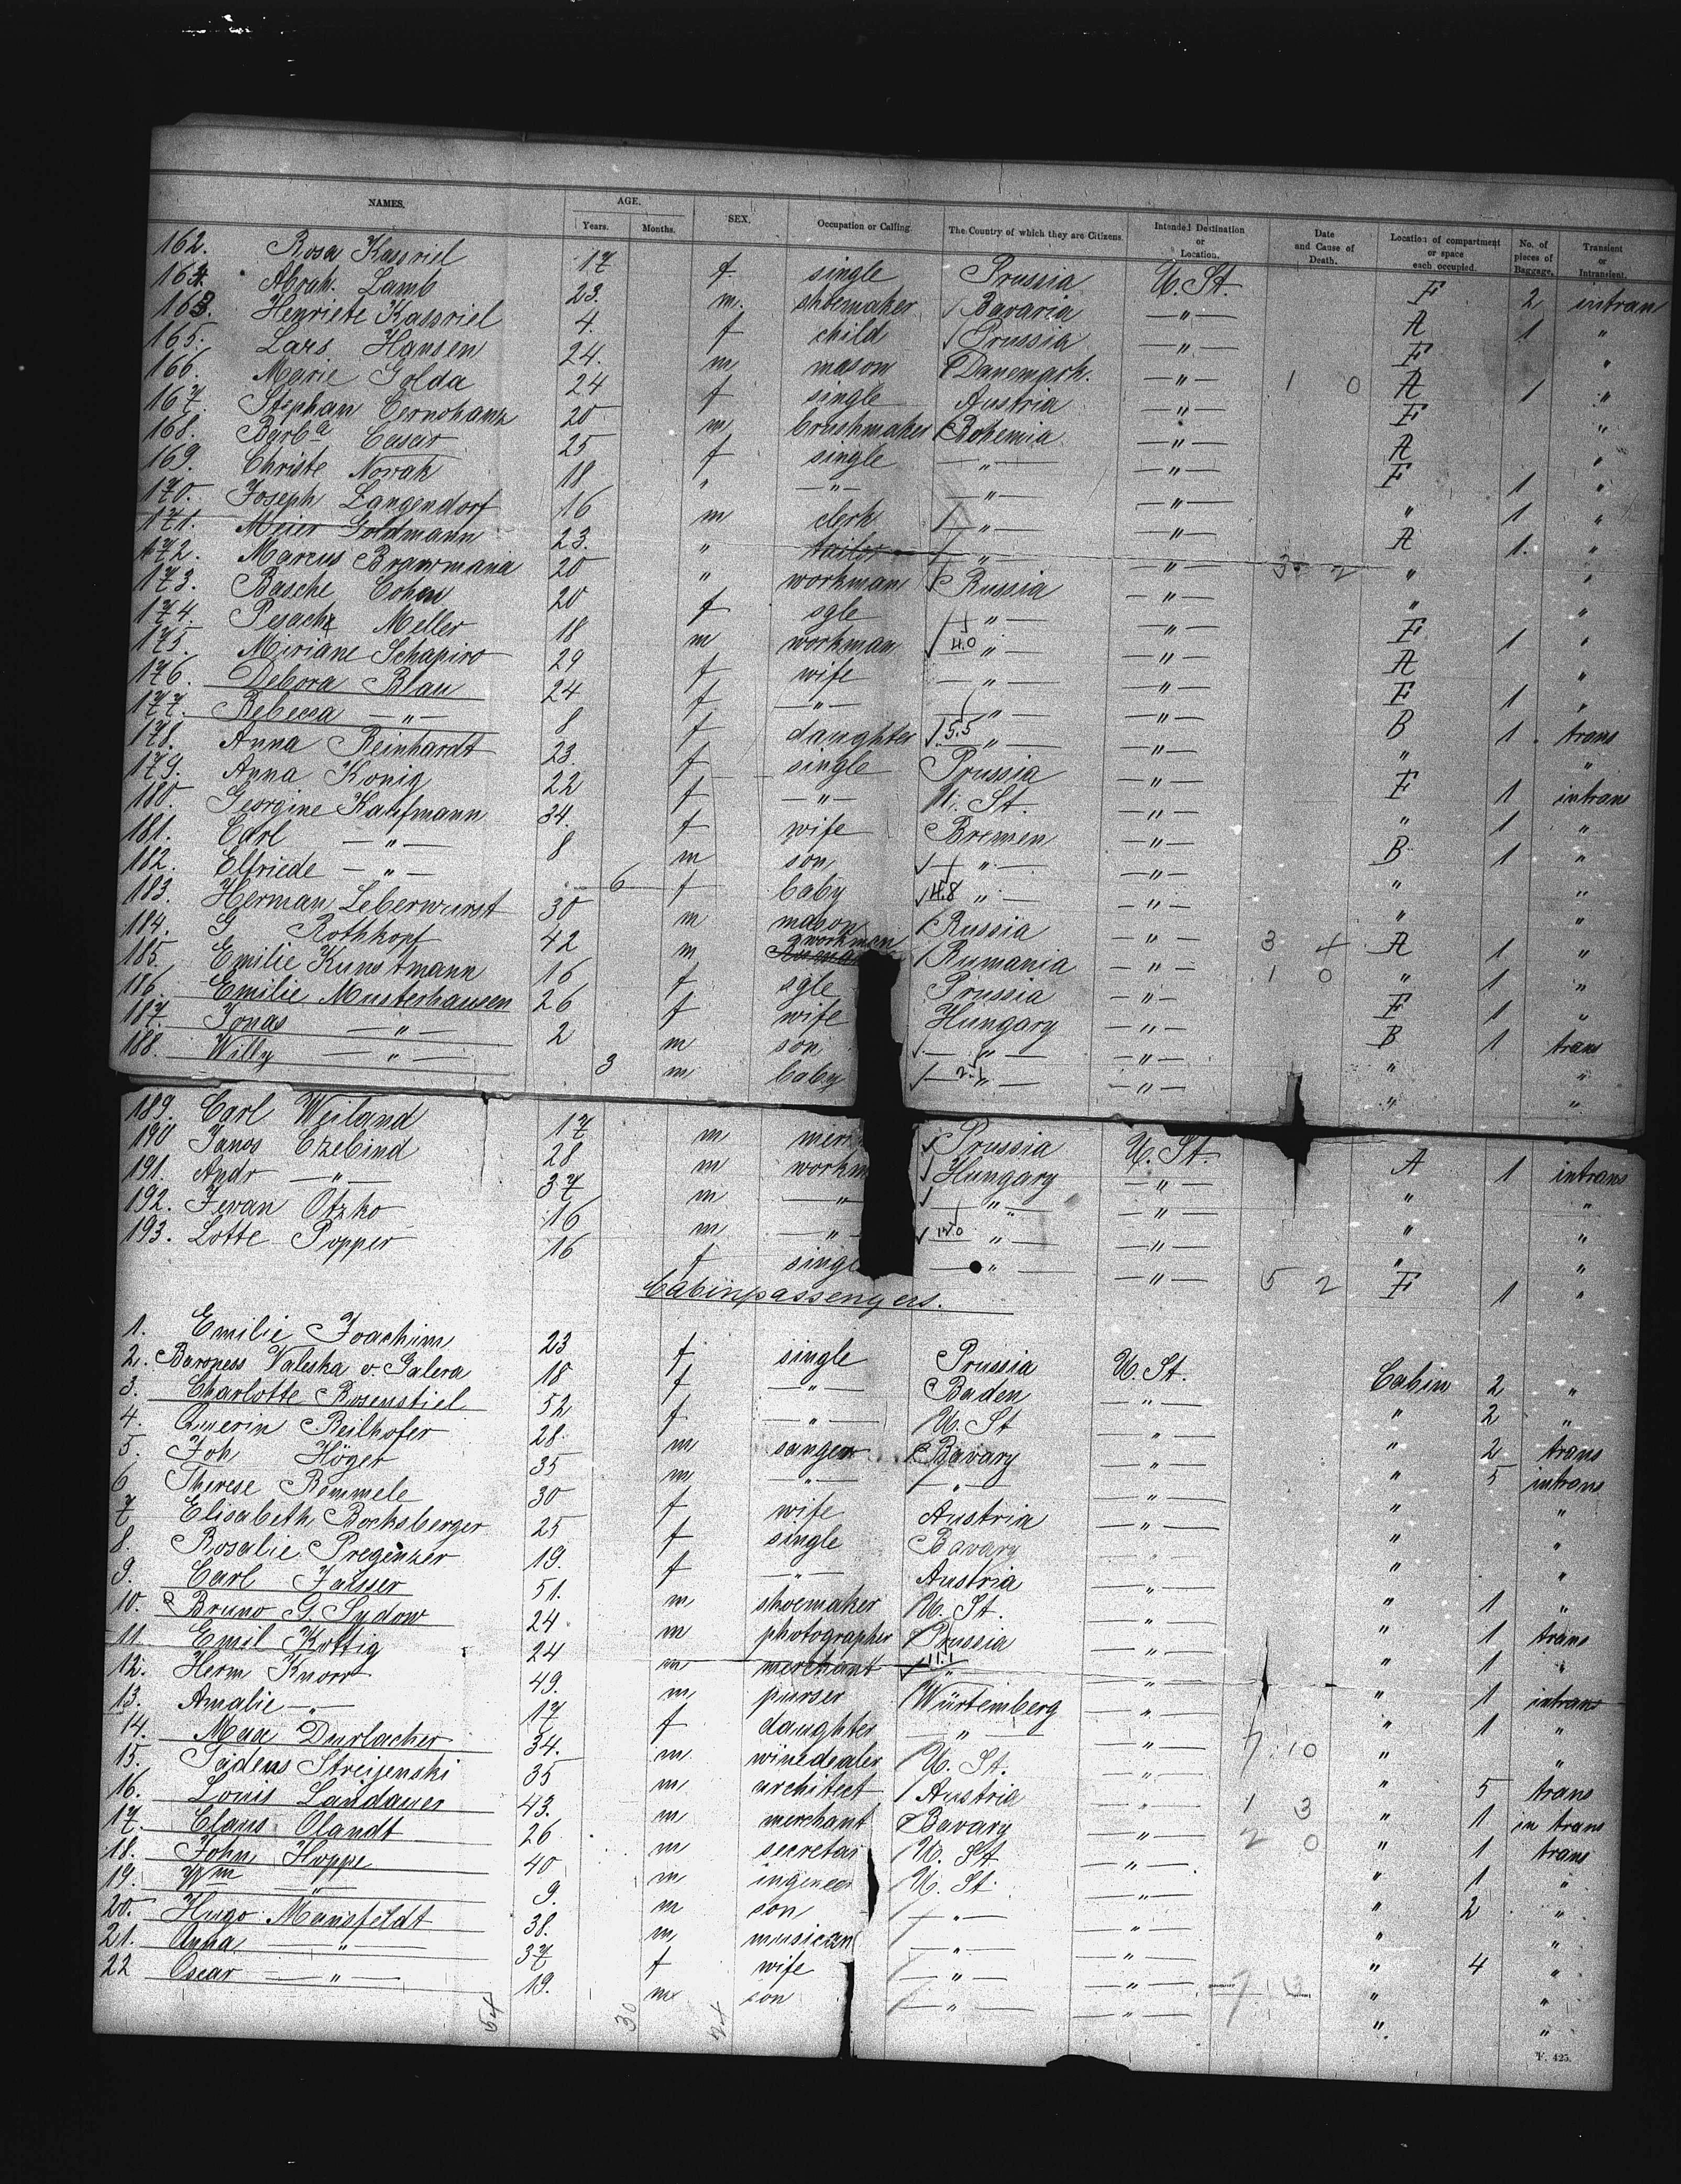 NAMES. AGE. SEX. Occupation or Calling. The Country of which they are Citizens. Intended Destination or Location. Date and Cause of Death. Location of compartment or space each occupied. No. of pieces of Baggage. Transient or Intransient.
Years. Months.
162. Rosa Kassriel 17 f. single Prussia U. St. F 2 intran
164. Abrah. Lamb 23. m. shoemaker Bavaria — " — A 1 "
163. Henriete Kassriel 4. f child Prussia — " — F "
165. Lars Hansen 24. m mason Danemark. — " — 1 0 A 1 "
166. Marie Golda 24 f single Austria — " — F "
167. Stephan Cernohank 20 m brushmaker Bohemia — " — A "
168. Barba Casar 25 f single — " — — " — F 1 "
169. Christe Novak 18 " — " — — " — — " — " 1 "
170. Joseph Langendorf 16 m clerk — " — — " — A 1. "
171. Meier Goldmann 23. " tailor — " — — " — 3 2 " "
172. Marcus Brawmania 20 " workman Russia — " — " "
173. Basche Cohen 20 f sgle — " — — " — F 1 "
174. Pesach Meller 18 m workman 4.0 " — — " — A "
175. Miriane Schapiro 29 f wife — " — — " — F 1 "
176. Debora Blau 24 f. — " — — " — — " — B 1. trans
177. Rebecca — " — 8 f daughter 5.5 " — — " — " "
178. Anna Reinhardt 23. f single Prussia — " — F 1 intrans
179. Anna König 22 f — " — U. St. — " — " 1 "
180. Georgine Kaufmann 34. f wife Bremen — " — B 1 "
181. Carl — " — 8 m son — " — — " — " "
182. Elfriede — " — 6 f baby 4.8 " — — " — " "
183. Herman Leberwurst 30 m mason Russia — " — 3 4 A 1 "
184. G Rothkopf 42 m workman Rumania — " — 1 0 " 1 "
185. Emilie Kunstmann 16 f sgle Prussia — " — F 1 "
186. Emilie Musterhausen 26 f wife Hungary — " — B 1 trans
187. Jonas — " — 2 m son — " — — " — " "
188. Willy — " — 3 m baby — 2.1 " — — " — " "
189. Carl Weiland 17 m mer Prussia U. St. A 1 intrans
190 Janos Czebind 28 m workm Hungary — " — " "
191. Andr — " — 37 m — " — " — — " — " "
192. Jevan Otzko 16 m — " 12.0 " — — " — " "
193. Lotte Popper 16 f single — " — — " — 5 2 F 1 "
Cabinpassengers.
1. Emilie Joachim 23 f single Prussia U. St. Cabin 2 "
2. Baroness Valeska v. Galera 18 f — " — Baden — " — " 2 "
3. Charlotte Rosenstiel 52 f — " — U. St — " — " 2 trans
4. Querin Beilhofer 28. m sanger Bavary — " — " 5 intrans
5. Joh Höger 35 m — " — — " — — " — " "
6 Therese Remmele 30 f wife Austria — " — " "
7 Elisabeth Bocksberger 25 f single Bavary " "
8. Rosalie Pregenzer 19. f — " — Austria — " — " 1 "
9. Carl Falsser 51. m shoemaker U. St. — " — " 1 trans
10. Bruno G. Sydow 24 m photographer Prussia — " — " 1 "
11. Emil Kottig 24 m merchant 11.1 " — " — " 1 intrans
12. Herm Knorr 49. m purser Würtemberg — " — " 1 "
13. Amalie — " — 17 f daughter — " — — " — 7 10 " "
14. Max Durlacher 34. m winedealer U. St. — " — " 5 trans
15. Tadeus Streijenski 35 m architect Austria — " — 1 3 " 1 in trans
16. Louis Landauer 43. m merchant Bavary — " — 2 0 " 1 trans
17. Claus Olandt 26 m secretar U. St — " — . " 1 "
18. John Hoppe 40 m ingeneer U. St. " 2 "
19. Wm — " — 9. m son — " — — " — " "
20. Hugo Mansfeldt 38. m musican — " — — " — " 4 "
21. Anna — " — 37 f wife — " — — " — 7 3 " "
22 Oscar — " — 19. m son — " — — " — " "
54 30 24
F. 425.